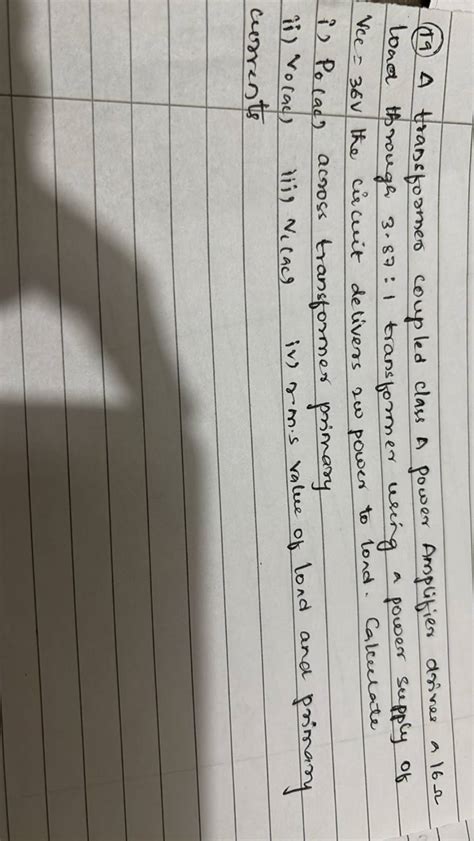 19) A transformer coupled class A power Amplifier drives a 16Ω
load through 3.87:1 transformer using a power supply of
Vcc = 36V the circuit delivers 2W power to load. Calculate
i) Po(ac) across transformer primary
ii) Vo(ac) iii) V1(ac) iv) r.m.s value of load and primary
currents